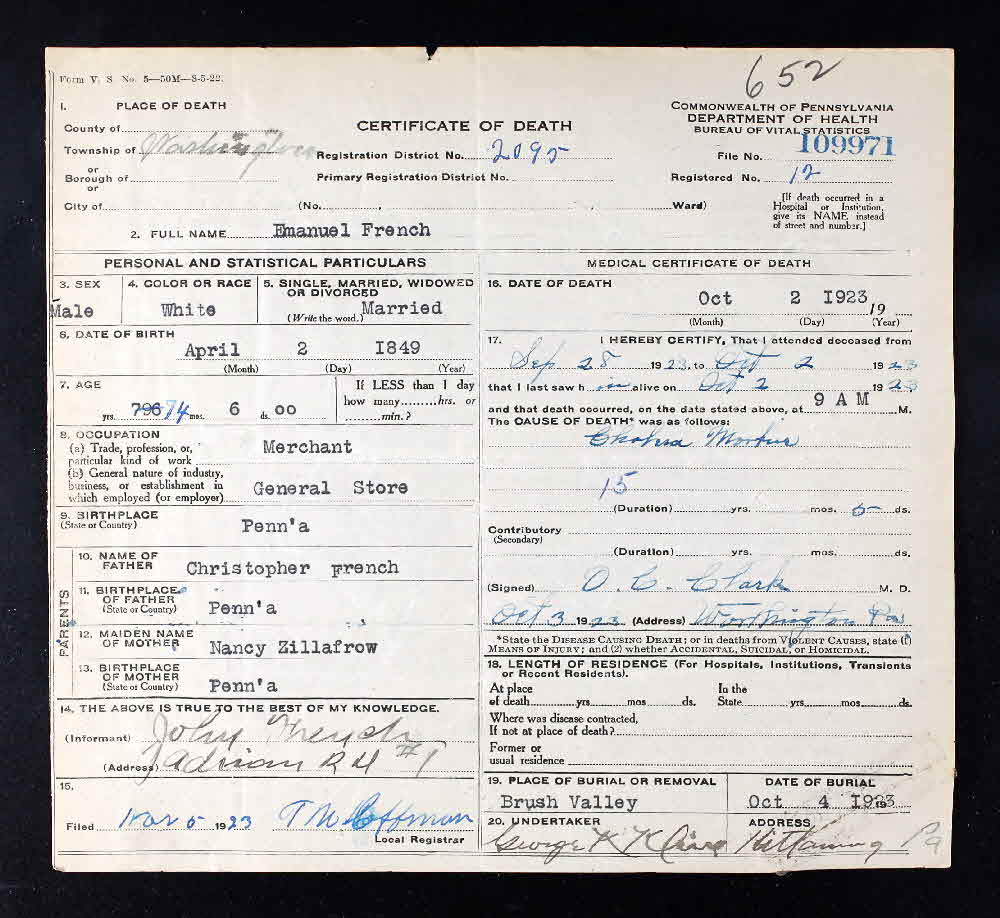 652
Form V. S. No. 5—50M—8-5-22.
1. PLACE OF DEATH
County of
Township of Washington
or
Borough of
or
City of
CERTIFICATE OF DEATH
Registration District No. 2095
Primary Registration District No.
(No. , , Ward)
COMMONWEALTH OF PENNSYLVANIA
DEPARTMENT OF HEALTH
BUREAU OF VITAL STATISTICS
File No. 109971
Registered No. 12
[If death occurred in a
Hospital or Institution,
give its NAME instead
of street and number.]
2. FULL NAME Emanuel French
PERSONAL AND STATISTICAL PARTICULARS
3. SEX
Male
4. COLOR OR RACE
White
5. SINGLE, MARRIED, WIDOWED
OR DIVORCED
(Write the word.) Married
6. DATE OF BIRTH
April 2 1849
(Month) (Day) (Year)
7. AGE
yrs. 796 74 mos. 6 ds. 00
If LESS than 1 day
how many........hrs. or
........min.?
8. OCCUPATION
(a) Trade, profession, or,
particular kind of work Merchant
(b) General nature of industry,
business, or establishment in
which employed (or employer) General Store
9. BIRTHPLACE
(State or Country) Penn'a
PARENTS
10. NAME OF
FATHER Christopher French
11. BIRTHPLACE
OF FATHER
(State or Country) Penn'a
12. MAIDEN NAME
OF MOTHER Nancy Zillafrow
13. BIRTHPLACE
OF MOTHER
(State or Country) Penn'a
14. THE ABOVE IS TRUE TO THE BEST OF MY KNOWLEDGE.
(Informant) John French
(Address) Adrian R D #1
15.
Filed Nov 5 1923 T M Coffman
Local Registrar
MEDICAL CERTIFICATE OF DEATH
16. DATE OF DEATH
Oct 2 1923 19
(Month) (Day) (Year)
17. I HEREBY CERTIFY, That I attended deceased from
Sep 28 1923, to Oct 2 1923
that I last saw h im alive on Oct 2 1923
and that death occurred, on the date stated above, at 9 A M M.
The CAUSE OF DEATH* was as follows:
Cholera Morbus
15
(Duration) yrs. mos. 5 ds.
Contributory
(Secondary)
(Duration) yrs. mos. ds.
(Signed) O. C. Clark M. D.
Oct 3 1923 (Address) Worthington Pa
*State the DISEASE CAUSING DEATH; or in deaths from VIOLENT CAUSES, state (1)
MEANS OF INJURY; and (2) whether ACCIDENTAL, SUICIDAL, or HOMICIDAL.
18. LENGTH OF RESIDENCE (For Hospitals, Institutions, Transients
or Recent Residents).
At place In the
of death yrs. mos ds. State yrs. mos. ds.
Where was disease contracted,
If not at place of death?
Former or
usual residence
19. PLACE OF BURIAL OR REMOVAL
Brush Valley
DATE OF BURIAL
Oct 4 1923
20. UNDERTAKER
George K Kline
ADDRESS
Kittanning Pa